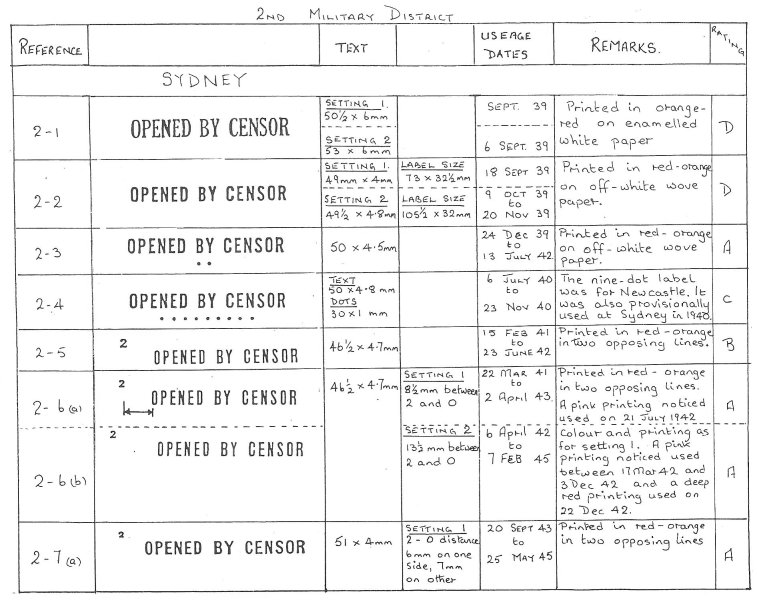 2ND MILITARY DISTRICT
REFERENCE TEXT USEAGE DATES REMARKS. RATING
SYDNEY
2-1
OPENED BY CENSOR
SETTING 1.
50½ x 6mm
SETTING 2
53 x 6mm
SEPT. 39
6 SEPT. 39
Printed in orange-
red on enamelled
white paper
D
2-2
OPENED BY CENSOR
SETTING 1.
49mm x 4mm
SETTING 2
49½ x 4.8mm
LABEL SIZE
73 x 32½mm
LABEL SIZE
105½ x 32mm
18 SEPT 39
9 OCT 39
to
20 NOV 39
Printed in red-orange
on off-white wove
paper.
D
2-3
OPENED BY CENSOR
• •
50 x 4.5mm
24 DEC 39
to
13 JULY 42
Printed in red-orange
on off-white wove
paper.
A
2-4
OPENED BY CENSOR
• • • • • • • • •
TEXT
50 x 4.8 mm
DOTS
30 x 1 mm
6 JULY 40
to
23 NOV 40
The nine-dot label
was for Newcastle. It
was also provisionally
used at Sydney in 1940.
C
2-5
2
OPENED BY CENSOR
46½ x 4.7mm
15 FEB 41
to
23 JUNE 42
Printed in red-orange
in two opposing lines.
B
2-6(a)
2
OPENED BY CENSOR
46½ x 4.7mm
SETTING 1
8½mm between
2 and O
22 MAR 41
to
2 April 43
Printed in red-orange
in two opposing lines.
A pink printing noticed
used on 21 JULY 1942
A
2-6(b)
2
OPENED BY CENSOR
SETTING 2
13½ mm between
2 and O
6 April 42
to
7 FEB 45
Colour and printing as
for setting 1. A pink
printing noticed used
between 17 Mar 42 and
3 Dec 42 and a deep
red printing used on
22 Dec 42.
A
2-7(a)
2
OPENED BY CENSOR
51 x 4mm
SETTING 1
2-O distance
6mm on one
side, 7mm
on other
20 SEPT 43
to
25 MAY 45
Printed in red-orange
in two opposing lines
A